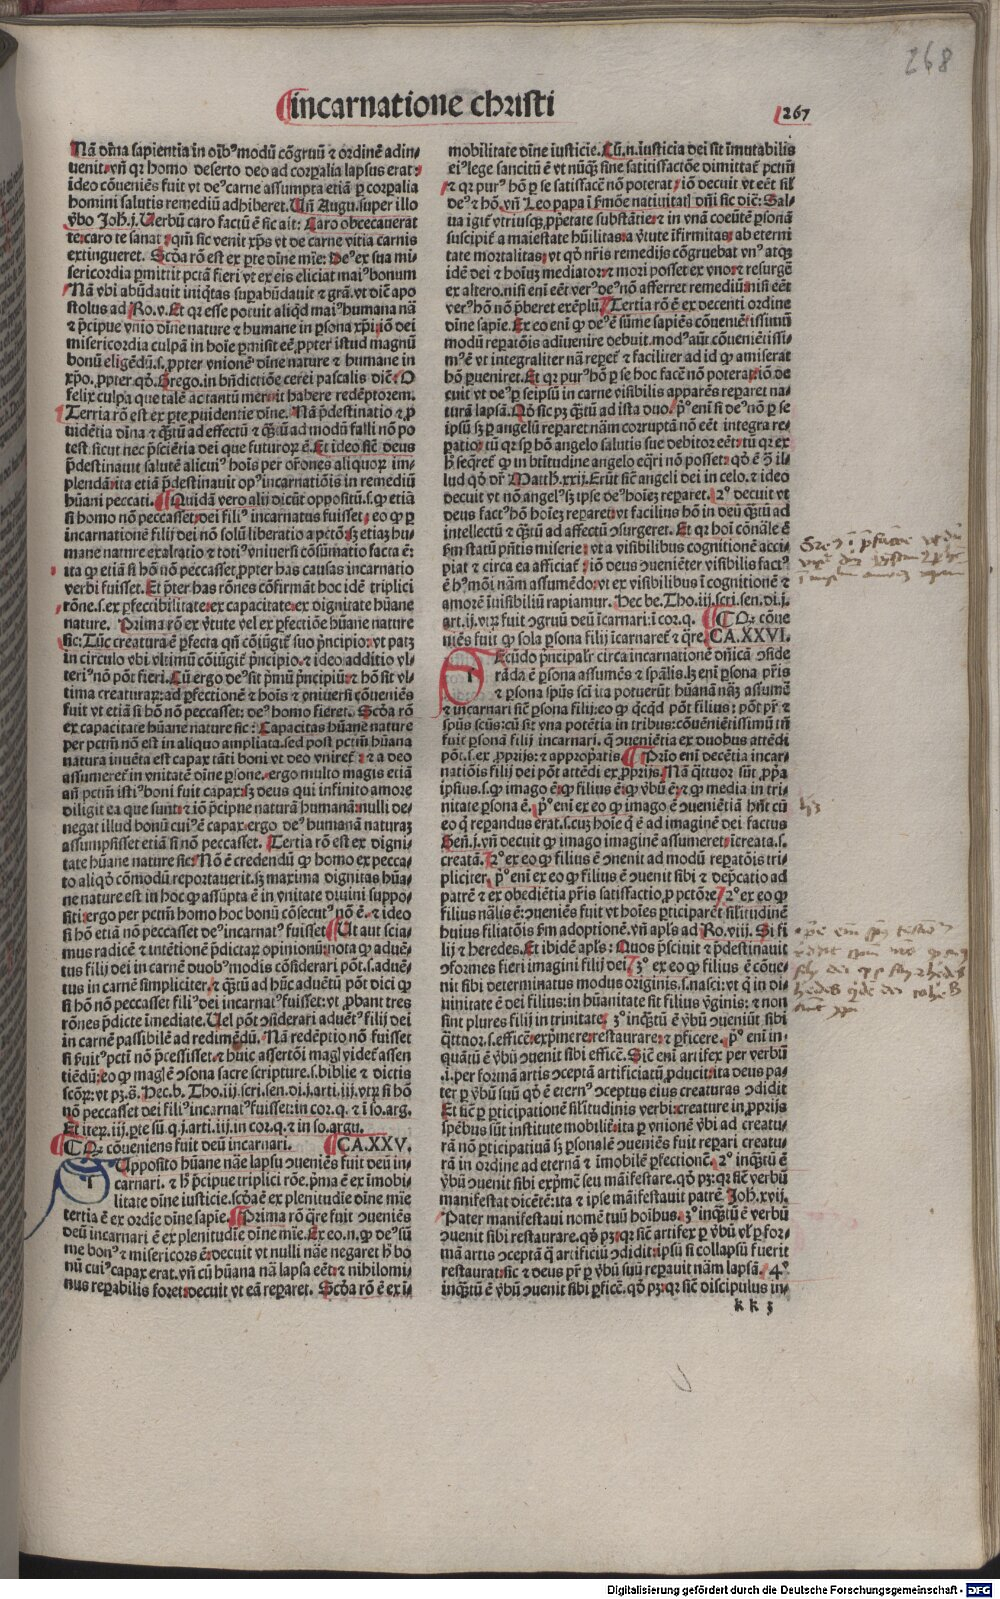 268
incarnatione christi
267
Nā dīna sapientia in oīb⁹ modū cōgruū ⁊ ordinē adin-
uenit. vn̄ qr homo deserto deo ad corꝑalia lapsus erat:
ideo cōueniēs fuit vt de⁹ carne assumpta etiā ꝑ corꝑalia
homini salutis remediū adhiberet. Un̄ Augu. super illo
v̄bo Joh̄. j. Uerbū caro factū ē sic ait: Caro obcecauerat
te: caro te sanat: qm̄ sic venit xp̄s vt de carne vitia carnis
extingueret. Scd̄a rō est ex ꝑte dīne mīe: De⁹ ex sua mi-
sericordia ꝑmittit pctā fieri vt ex eis eliciat mai⁹ bonum
Nā vbi abūdauit iniq̄tas suꝑabūdauit ⁊ grā. vt dic̄ apo
stolus ad Ro. v. Et qr esse potuit aliqd̄ mai⁹ humana nā
⁊ p̄cipue vnio dīne nature ⁊ humane in ꝑsona xp̄i: iō dei
misericordia culpā in hoīe ꝑmisit eē ꝓpter istud magnū
bonū eligēdū. s. ꝓpter vnionē dīne nature ⁊ humane in
xp̄o. ꝓpter qd̄. Grego. in bn̄dictiōe cerei pascalis dic̄: O
felix culpa que talē ac tantū meruit habere redēptorem.
Tertia rō est ex ꝑte ꝓuidentie dīne. Nā p̄destinatio ⁊ ꝓ
uidētia dīna ⁊ q̄tū ad effectū ⁊ q̄tū ad modū falli nō po
test. sicut nec p̄sciētia dei que futuroꝝ ē. Et ideo sic̄ deus
p̄destinauit salutē alicui⁹ hoīs per orōnes aliquoꝝ im-
plendā: ita etiā p̄destinauit op⁹ incarnatiōis in remediū
hūani peccati. Quidā vero alij dicūt oppositū. s. ꝙ etiā
si homo nō peccasset: dei fili⁹ incarnatus fuisset: eo ꝙ ꝑ
incarnationē filij dei nō solū liberatio a pctō: sꝫ etiā hu-
mane nature exaltatio ⁊ toti⁹ vniuersi cōsūmatio facta ē:
ita ꝙ etiā si hō nō peccasset ꝓpter has causas incarnatio
verbi fuisset. Et p̄ter has rōnes cōfirmāt hoc idē triplici
rōne. s. ex ꝑfectibilitate: ex capacitate: ex dignitate hūane
nature. Prima rō ex v̄tute vel ex ꝑfectiōe hūane nature
sic: Tūc creatura ē ꝑfecta qn̄ cōiūgit̄ suo p̄ncipio: vt patꝫ
in circulo vbi vltimū cōiūgit̄ p̄ncipio. ⁊ ideo additio vl-
teri⁹ nō pōt fieri. Cū ergo de⁹ sit p̄mū p̄ncipiū: ⁊ hō sit vl-
tima creaturaꝝ: ad ꝑfectionē ⁊ hoīs ⁊ vniuersi cōueniēs
fuit vt etiā si hō nō peccasset: de⁹ homo fieret. Scd̄a rō
ex capacitate hūane nature sic: Capacitas hūane nature
per pctm̄ nō est in aliquo ampliata. sed post pctm̄ hūana
natura inuēta est capax tāti boni vt deo vniret̄ ⁊ a deo
assumeret̄ in vnitatē dīne ꝑsone. ergo multo magis etiā
an̄ pctm̄ isti⁹ boni fuit capax: sꝫ deus qui infinito amore
diligit ea que sunt: ⁊ iō p̄cipue naturā humanā: nulli de-
negat illud bonū cui⁹ ē capax: ergo de⁹ humanā naturaꝫ
assumpsisset etiā si hō nō peccasset. Tertia rō est ex digni-
tate hūane nature sic: Nō ē credendū ꝙ homo ex pecca-
to aliqd̄ cōmodū reportauerit. sꝫ maxima dignitas hūa-
ne nature est in hoc ꝙ assūpta ē in vnitate diuini supposi-
ti: ergo per pctm̄ homo hoc bonū cōsecut⁹ nō ē. ⁊ ideo
si hō etiā nō peccasset de⁹ incarnat⁹ fuisset. Ut aut scia-
mus radicē ⁊ intētionē p̄dictaꝝ opinionū: nota ꝙ aduē-
tus filij dei in carnē duob⁹ modis cōsiderari pōt. s. aduē-
tus in carnē simpliciter. ⁊ q̄tū ad hūc aduētū pōt dici ꝙ
si hō nō peccasset fili⁹ dei incarnat⁹ fuisset: vt ꝓbant tres
rōnes p̄dicte īmediate. Uel pōt ɔsiderari aduēt⁹ filij dei
in carnē passibilē ad redimēdū. Nā redēptio nō fuisset
si fuit⁹ pctm̄ nō p̄cessisset. ⁊ huic assertōi magꝭ videt̄ assen
tiēdū: eo ꝙ magꝭ ē ɔsona sacre scripture. s. biblie ⁊ dictis
scōꝝ: vt pꝫ. s̄. Hec. b. Tho. iij. scri. sen. di. j. arti. iij. vtꝝ si hō
nō peccasset dei fili⁹ incarnat⁹ fuisset: in cor. q. ⁊ ī so. arg.
Et iteꝝ. iij. ꝑte sū. q. j. arti. iij. in cor. q. ⁊ in so. argu.
Qꝫ cōueniens fuit deū incarnari. CA. XXV.
Upposito hūane nāe lapsu ɔueniēs fuit deū in-
carnari. ⁊ h̄ p̄cipue triplici rōe. p̄ma ē ex īmobi-
litate dīne iusticie. scd̄a ē ex plenitudīe dīne mīe
tertia ē ex ordīe dīne sapīe. Prima rō q̄re fuit ɔueniēs
deū incarnari ē ex plenitudīe dīne mīe. Ex eo. n. ꝙ de⁹ sū
me bon⁹ ⁊ misericors ē: decuit vt nulli nāe negaret h̄ bo
nū cui⁹ capax erat. vn̄ cū hūana nā lapsa eēt: ⁊ nihilomi-
nus reꝑabilis foret: decuit vt eā reꝑaret. Scd̄a rō ē ex i-
mobilitate dīne iusticie. Cū. n. iusticia dei sit īmutabilis
ei⁹ lege sancitū ē vt nūq̄ sine satiffactōe dimittat̄ pctm̄
⁊ qr pur⁹ hō ꝑ se satisfacē nō poterat: iō decuit vt eēt sil̄
de⁹ ⁊ hō. vn̄ Leo papa ī fmōe natiuitatꝭ dn̄i sic dic̄: Sal-
ua igit̄ vtriusqꝫ ꝓpetate substātie: ⁊ in vnā coeūte ꝑsonā
suscipit̄ a maiestate hūilitas: a v̄tute īfirmitas: ab eterni
tate mortalitas: vt qd̄ nr̄is remedijs cōgruebat vn⁹ atqꝫ
idē dei ⁊ hoīuꝫ mediator: ⁊ mori posset ex vno: ⁊ resurgē
ex altero. nisi eni eēt ver⁹ de⁹ nō afferret remediū: nisi eēt
ver⁹ hō nō p̄beret exēplū. Tertia rō ē ex decenti ordine
dīne sapīe. Ex eo eni ꝙ de⁹ ē sūme sapiēs cōueniētissimū
modū reparatōis adiuenire debuit. mod⁹ aūt cōuenientissi-
m⁹ ē vt integraliter nā repet̄ ⁊ faciliter ad id ꝙ amiserat
hō ꝑueniret. Et qr pur⁹ hō ꝑ se hoc facē nō poterat: iō de
cuit vt de⁹ ꝑ seipsū in carne visibilis apparēs reꝑaret na-
turā lapsā. Qd̄ sic pꝫ q̄tū ad ista duo. p⁰ eni si de⁹ nō ꝑ se
ipsū sꝫ ꝑ angelū reꝑaret nām corruptā nō eēt integra re-
ꝑatio: tū qr sp̄ hō angelo salutis sue debitor eēt: tū qr ex
h̄ seqret̄ ꝙ in btītudine angelo eq̄ri nō posset: qd̄ ē ɔ̄ il-
lud qd̄ dr̄ Matth. xxij. Erūt sic̄ angeli dei in celo. ⁊ ideo
decuit vt nō angel⁹ sꝫ ipse de⁹ hoīeꝫ reꝑaret. 2⁰ decuit vt
deus fact⁹ hō hoīeꝫ reꝑaret: vt facilius hō in deū q̄tū ad
intellectū ⁊ q̄tū ad affectū ɔsurgeret. Et qr hoī cōnāle ē
fm statū p̄ntis miserie: vt a visibilibus cognitionē acci-
piat ⁊ circa ea afficiat̄: iō deus ɔueniēter visibilis fact⁹
ē h⁹mōi nām assumēdo: vt ex visibilibus ī cognitionē ⁊
amorē īuisibiliū rapiamur. Hec be. Tho. iij. scri. sen. di. j.
art. ij. vtꝝ fuit ɔgruū deū īcarnari: ī cor. q. Qꝫ cōue
niēs fuit ꝙ sola ꝑsona filij īcarnaret̄ ⁊ q̄re. CA. XXVI.
Ecūdo p̄ncipalr̄ circa incarnationē dn̄icā ɔside
rāda ē ꝑsona assumēs ⁊ sp̄alis. lꝫ eni ꝑsona pr̄is
⁊ ꝑsona sp̄us sci ita potuerūt hūanā nāꝫ assumē
⁊ incarnari sic̄ ꝑsona filij: eo ꝙ q̄cqd̄ pōt filius: pōt pr̄ ⁊
sp̄us scūs: cū sit vna potētia in tribus: cōueniētissimū tn̄
fuit ꝑsonā filij incarnari. q̄ ɔueniētia ex duobus attēdi
pōt. s. ex ꝓprijs: ⁊ appropatis. Prīo eni decētia incar-
natiōis filij dei pōt attēdi ex ꝓprijs. Nā qttuor sūt ꝓpa
ipsius. s. ꝙ imago ē: ꝙ filius ē: ꝙ v̄bū ē: ⁊ ꝙ media in tri-
nitate ꝑsona ē. p⁰ eni ex eo ꝙ imago ē ɔueniētiā hn̄t cū
eo q̄ reꝑandus erat. s. cuꝫ hoīe q̄ ē ad imaginē dei factus
Gen̄. j. vn̄ decuit ꝙ imago imaginē assumeret: increata. s.
creatā. 2⁰ ex eo ꝙ filius ē ɔuenit ad modū reꝑatōis tri-
pliciter. p⁰ eni ex eo ꝙ filius ē ɔuenit sibi ⁊ dep̄catio ad
patrē ⁊ ex obediētia pr̄is satisfactio ꝓ pctōre. 2⁰ ex eo ꝙ
filius nālis ē: ɔueniēs fuit vt hoīes ꝑticiparēt sil̄itudinē
huius filiatōis fm adoptionē. vn̄ apls ad Ro. viij. Si fi
lij ⁊ heredes. Et ibidē apls: Quos p̄sciuit ⁊ p̄destinauit
ɔformes fieri imagini filij dei. 3⁰ ex eo ꝙ filius ē cōue-
nit sibi determinatus modus originis. s. nasci: vt q̄ in di-
uinitate ē dei filius: in hūanitate sit filius v̄ginis: ⁊ non
sint plures filij in trinitate. 3⁰ inq̄tū ē v̄bū ɔueniūt sibi
q̄ttuor. s. efficē: exp̄mere: restaurare: ⁊ ꝑficere. p⁰ eni in-
quātū ē v̄bū ɔuenit sibi efficē. Sic̄ eni artifex per verbū
.i. per formā artis ɔceptā artificiatū ꝓducit: ita deus pa-
ter ꝑ v̄bū suū qd̄ ē etern⁹ ɔceptus eius creaturas ɔdidit
Et sic̄ ꝑ ꝑticipationē sil̄itudinis verbi: creature in ꝓprijs
spēbus sūt institute mobiliē: ita ꝑ vnionē v̄bi ad creatu-
rā nō ꝑticipatiuā sꝫ ꝑsonalē ɔueniēs fuit repari creatu-
rā in ordine ad eternā ⁊ īmobilē ꝑfectionē. 2⁰ inq̄tū ē
v̄bū ɔuenit sibi exp̄mē seu māifestare. qd̄ pꝫ: qr sic̄ verbū
manifestat dicētē: ita ⁊ ipse māifestauit patrē. Joh̄. xvij.
Pater manifestaui nomē tuū hoībus. 3⁰ inq̄tū ē verbū
ɔuenit sibi restaurare. qd̄ pꝫ: qr sic̄ artifex ꝑ v̄bū vl̄ ꝑ for-
mā artis ɔceptā q̄ artificiū ɔdidit: ipsū si collapsū fuerit
restaurat: sic ⁊ deus pr̄ ꝑ v̄bū suū reꝑauit nām lapsā. 4⁰
inq̄tū ē v̄bū ɔuenit sibi ꝑficē. qd̄ pꝫ: qr sic̄ discipulus in-
k k 3
Digitalisierung gefördert durch die Deutsche Forschungsgemeinschaft - DFG